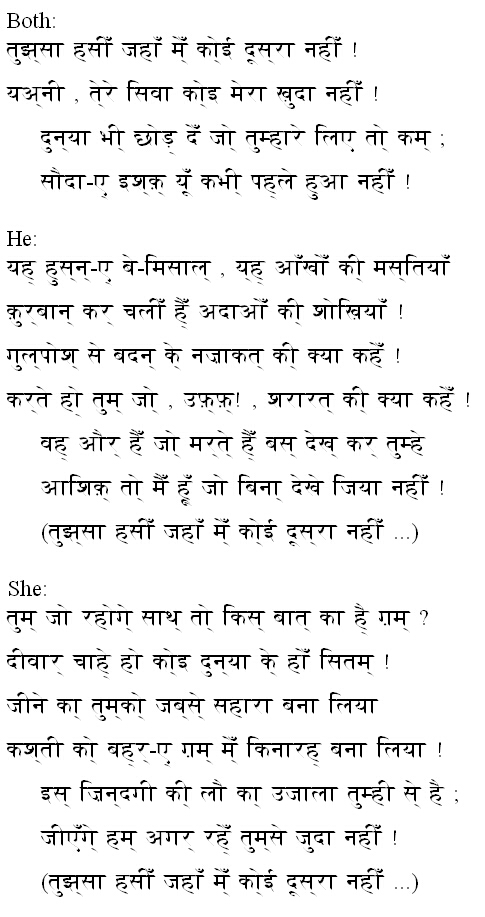 Both:
तुझ्सा हसीँ जहाँ मेँ को्ई दूस्‌रा नहीँ !
यअ्‌नी , ते्‌रे सिवा को्इ मेरा ख़ुदा नहीँ !
दुन्‌या भी् छोड़्‌ देँ जो् तुम्हारे लिए् तो कम्‌ ;
सौदा-ए् इश्‌क़्‌ यूँ कभी् पह्‌ले हुआ नहीँ !
He:
यह्‌ हुस्‌न्‌-ए् बे-मिसाल्‌ , य्‌ह्‌ आँखोँ की् मस्‌तियाँ
क़ुर्‌बान्‌ कर्‌ चलीँ है्ँ अदाओँ की् शोख़ियाँ !
गुल्‌पोश्‌ से बदन्‌ के् नज़ाकत्‌ की् क्या कहेँ !
कर्‌ते हो् तुम्‌ जो् , उफ़्‌फ़्‌! , शरारत्‌ की् क्या कहेँ !
वह्‌ और्‌ हैँ जो् मर्‌ते है्ँ बस्‌ देख्‌ कर्‌ तुम्हे
आशिक़्‌ तो् मैँ हू्ँ जो बिना् देखे जिया नहीँ !
(तुझ्‌सा हसीँ जहाँ मे्ँ को्ई दूस्‌रा नहीँ ...)
She:
तुम्‌ जो रहोगे् साथ्‌ तो किस्‌ बात्‌ का है् ग़म्‌ ?
दीवार्‌ चाहे् हो को्इ दुन्‌या के् होँ सितम्‌ !
जीने का् तुम्‌को जब्‌से् सहारा बना लिया
कश्‌ती को् बह्‌र्‌-ए् ग़म्‌ मे्ँ किनारह्‌ बना लिया !
इस्‌ ज़िन्‌दगी की् लौ का उजाला तुम्ही से् है ;
जीएँगे् हम्‌ अगर्‌ रहेँ तुम्‌से जुदा नहीँ !
(तुझ्‌सा हसीँ जहाँ मे्ँ को्ई दूस्‌रा नहीँ ...)